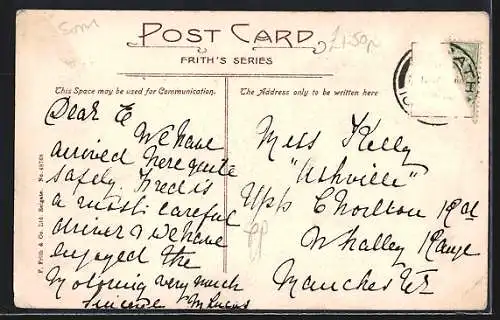 £1.50p
POST CARD
FRITH'S SERIES
This Space may be used for Communication.
The Address only to be written here
Dear E
We have
arrived here quite
safely. Fred is
a most careful
driver & we have
enjoyed the
Motoring very much
M Lucas
Miss Kelly
"Ashville"
Upp Chorlton Rd
Whalley Range
Manchester
pp
F. Frith & Co. Ltd. Reigate.